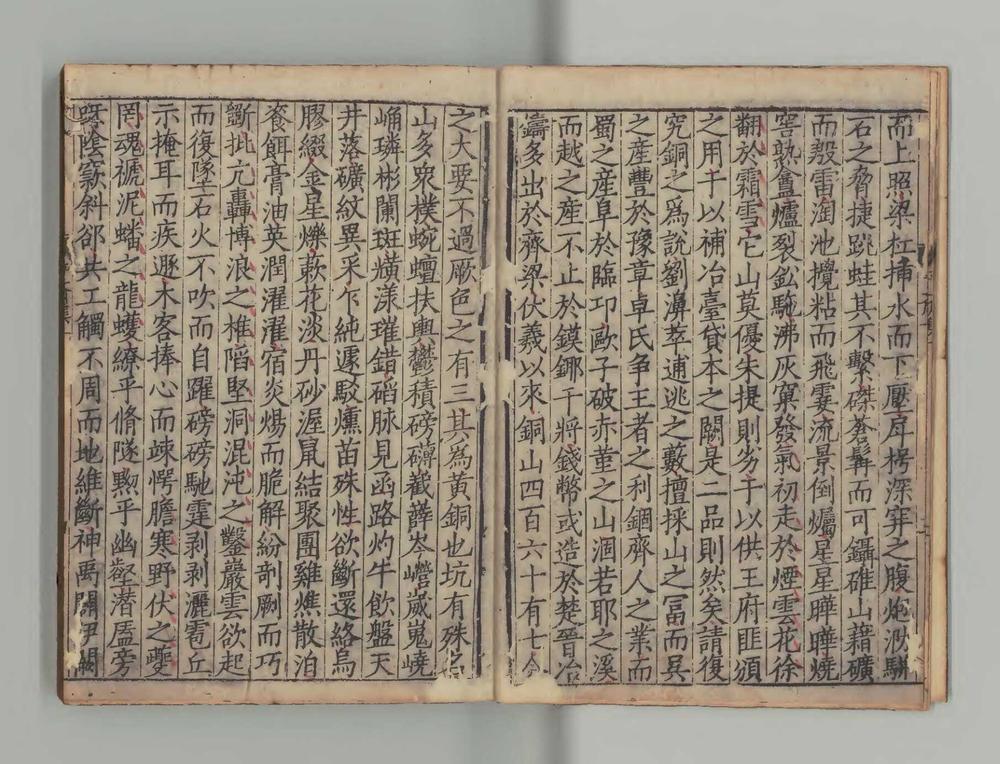 而上照梁杠插水而下壓戽枵深穽之腹炮沙駢
石之脅捷跳蛙其不繫磔蒼髯而可鑷碓山藉礦
而殷雷淘池攪粘而飛霎流景倒爥星星曄曄燒
窖熟盦爐裂鈆馳沸灰窠發氣初走於煙雲花徐
翻於霜雪它山莫優朱提則劣于以供王府匪頒
之用于以補冶臺貸本之闕是二品則然矣請復
究銅之為說劉濞萃逋逃之藪擅採山之冨而吳
之產豐於豫章卓氏爭王者之利錮齊人之業而
蜀之產阜於臨卭歐子破赤堇之山涸若耶之溪
而越之產不止於鏌鋣干將錢幣或造於楚晉冶
鑄多出於齊梁伏羲以來銅山四百六十有七今
之大要不過厥色之有三其為黃銅也坑有殊
山多衆樸蜿蟺扶輿鬱積磅礡巀嶭岑巆嵗嵬嶢
崅璘彬闌斑熿漾璀錯碏脉見函路灼牛飲盤天
井落礦紋異采乍純遽駁燻苗殊性欲斷還絡烏
膠綴金星爍蔌花淡丹砂渥鼠結聚團雞燋散泊
餈餌膏油英潤濯濯宿炎煬而脆解紛剞劂而巧
斷批亢轟博浪之椎陷堅洞混沌之鑿巖雲欲起
而復墜石火不吹而自躍磅磅馳霆剥剥灑雹丘
示掩耳而疾遯木客捧心而竦愕膽寒野伏之夔
罔魂禠泥蟠之龍蠼繚乎脩隧黝乎幽壑潛厓旁
呀陰窾斜郤共工觸不周而地維斷神禹闢伊闕